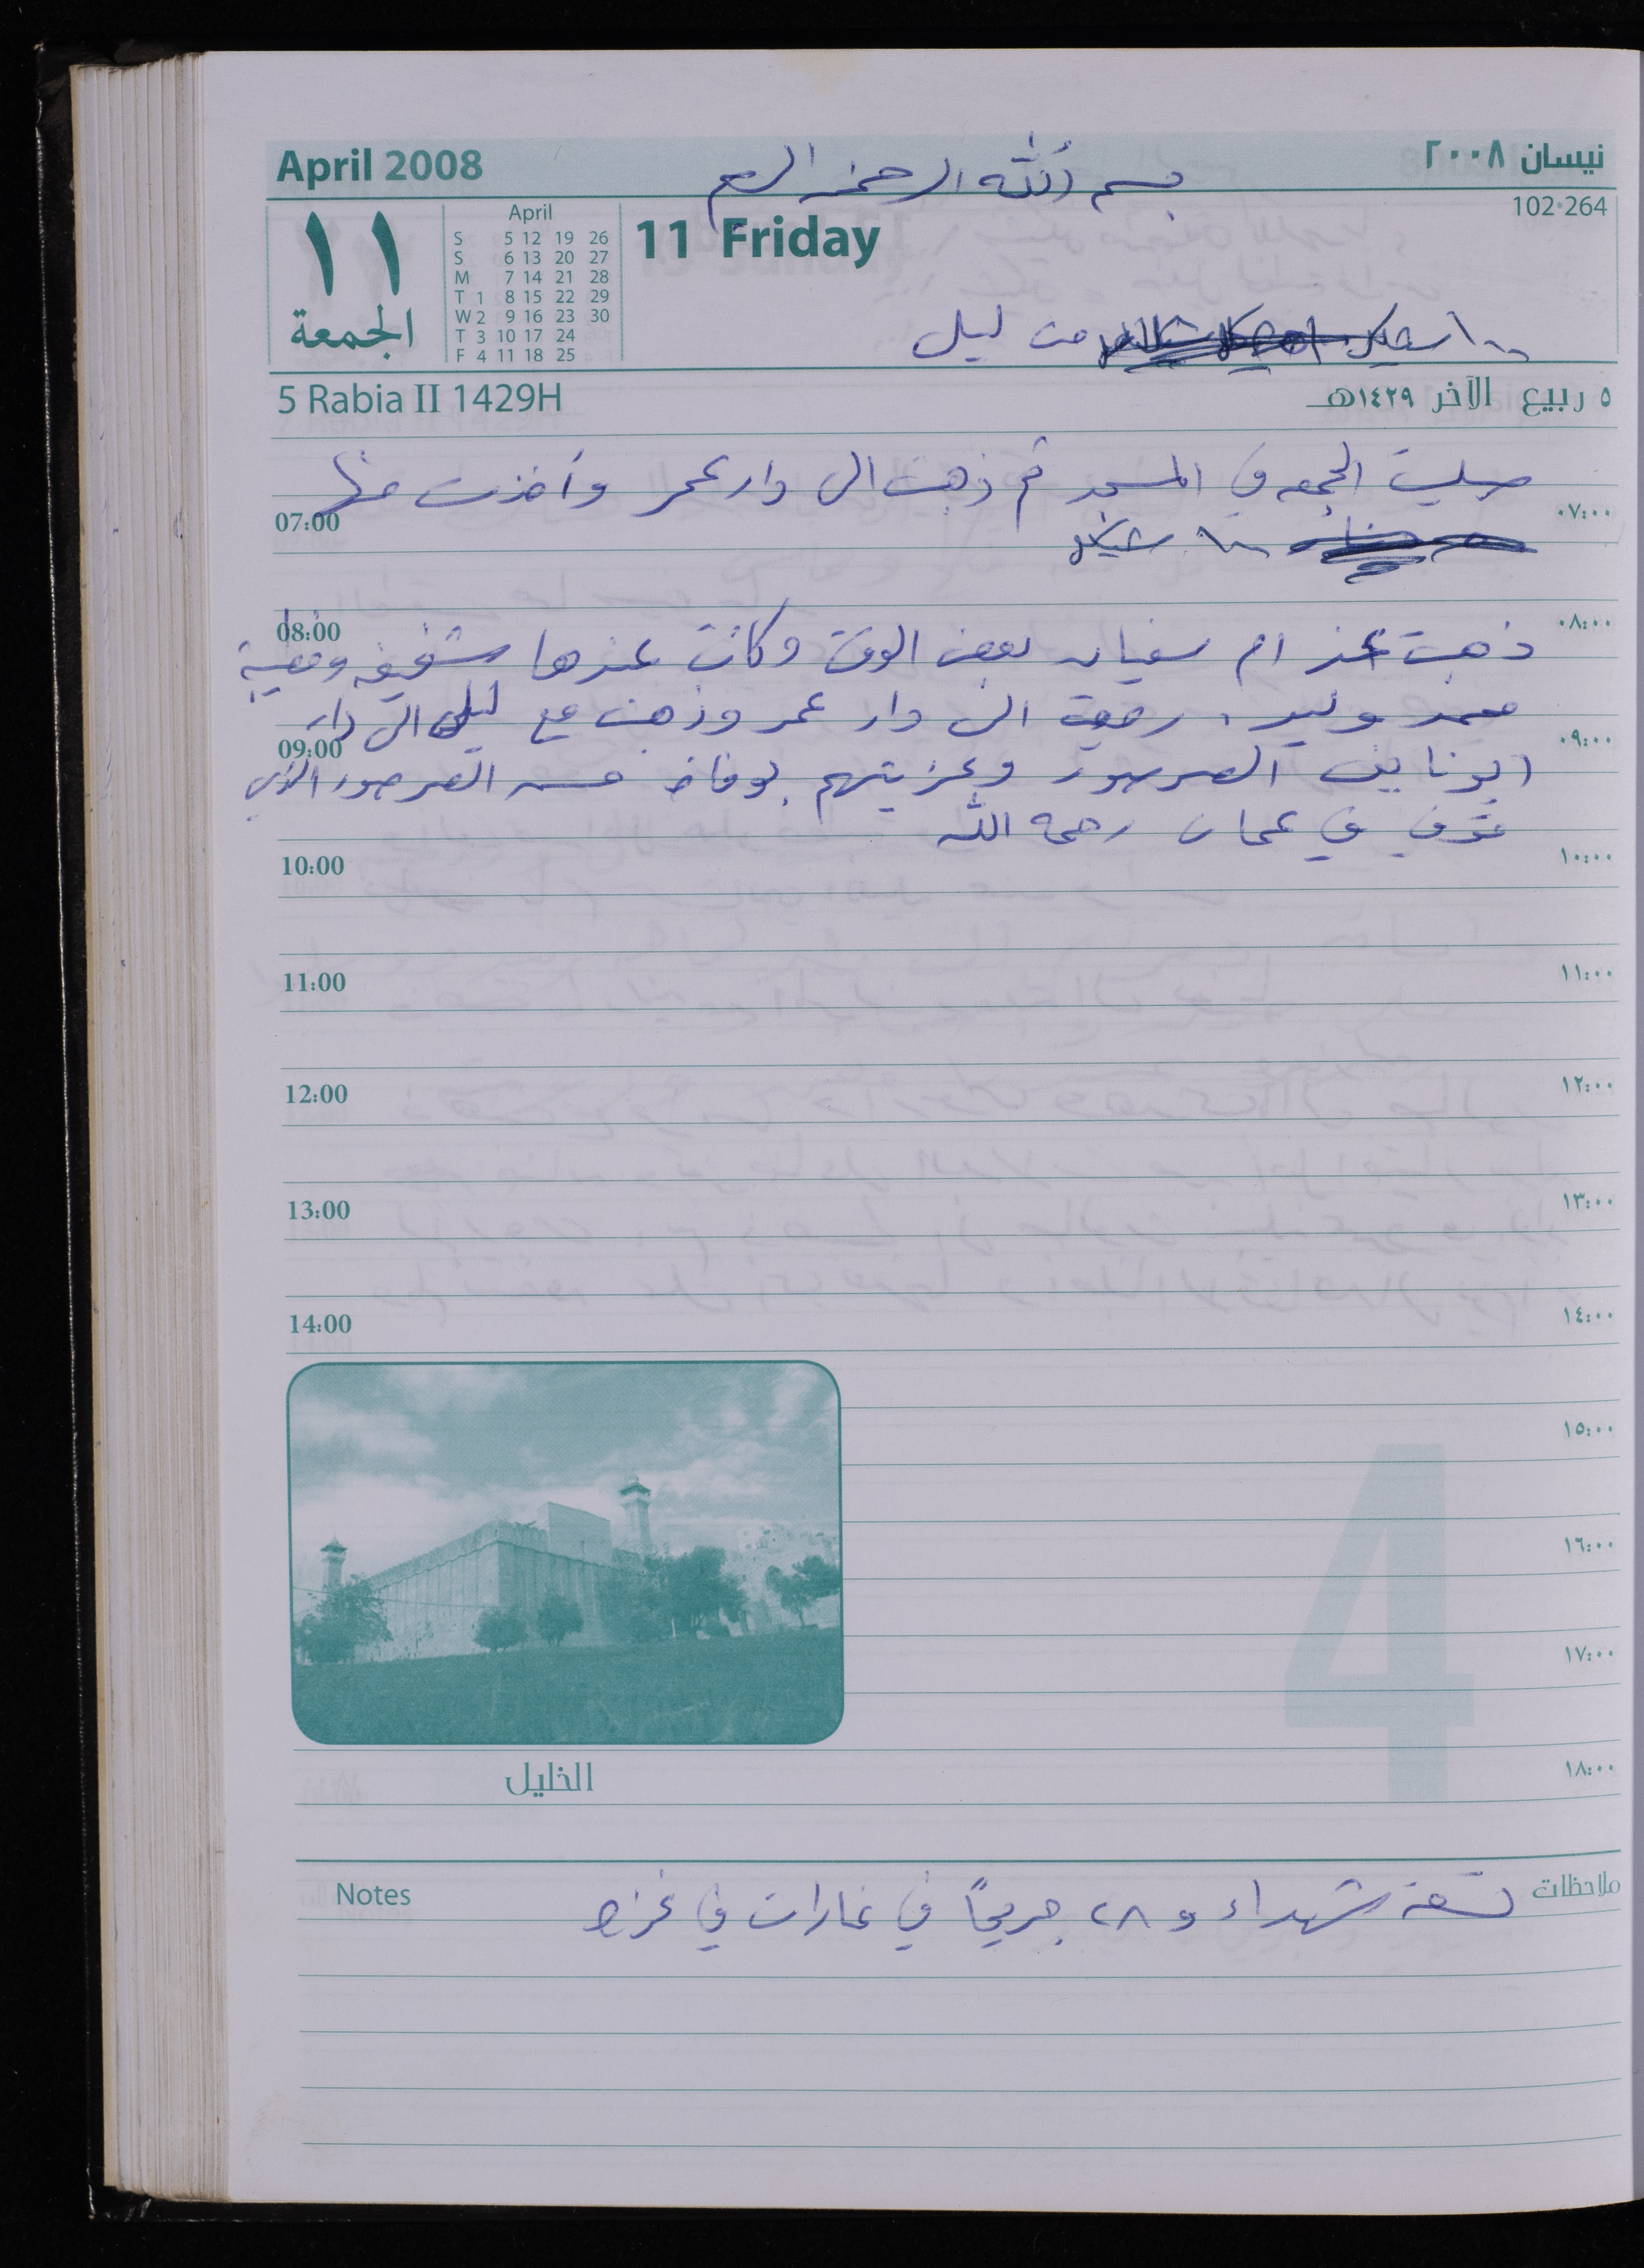 April 2008
نيسان ٢٠٠٨
بسم الله الرحمن الرحيم
102-264
١١
الجمعة
April
S 5 12 19 26
S 6 13 20 27
M 7 14 21 28
T 1 8 15 22 29
W 2 9 16 23 30
T 3 10 17 24
F 4 11 18 25
11 Friday
١٠٠ شيكل من ليلى
5 Rabia II 1429H
٥ ربيع الآخر ١٤٢٩هـ
صليت الجمعه في المسجد ثم ذهبت الى دار عمر وأخذت منها
07:00 ٠٧:٠٠
١٠٠ شيكل
08:00 ٠٨:٠٠
ذهبت عند ام سفيان بعض الوقت وكانت عندها شفيقه و
محمد وليد . رجعت الى دار عمر وذهبت مع ليلى الى دار
09:00 ٠٩:٠٠
ابو نايف الصرصور وعزيتهم بوفاة حسن الصرصور الذي
توفي في عمان رحمه الله
10:00 ١٠:٠٠
11:00 ١١:٠٠
12:00 ١٢:٠٠
13:00 ١٣:٠٠
14:00 ١٤:٠٠
١٥:٠٠
١٦:٠٠
4
١٧:٠٠
١٨:٠٠
الخليل
Notes
ملاحظات
تسعة شهداء و ٢٨ جريحاً في غارات في غزه